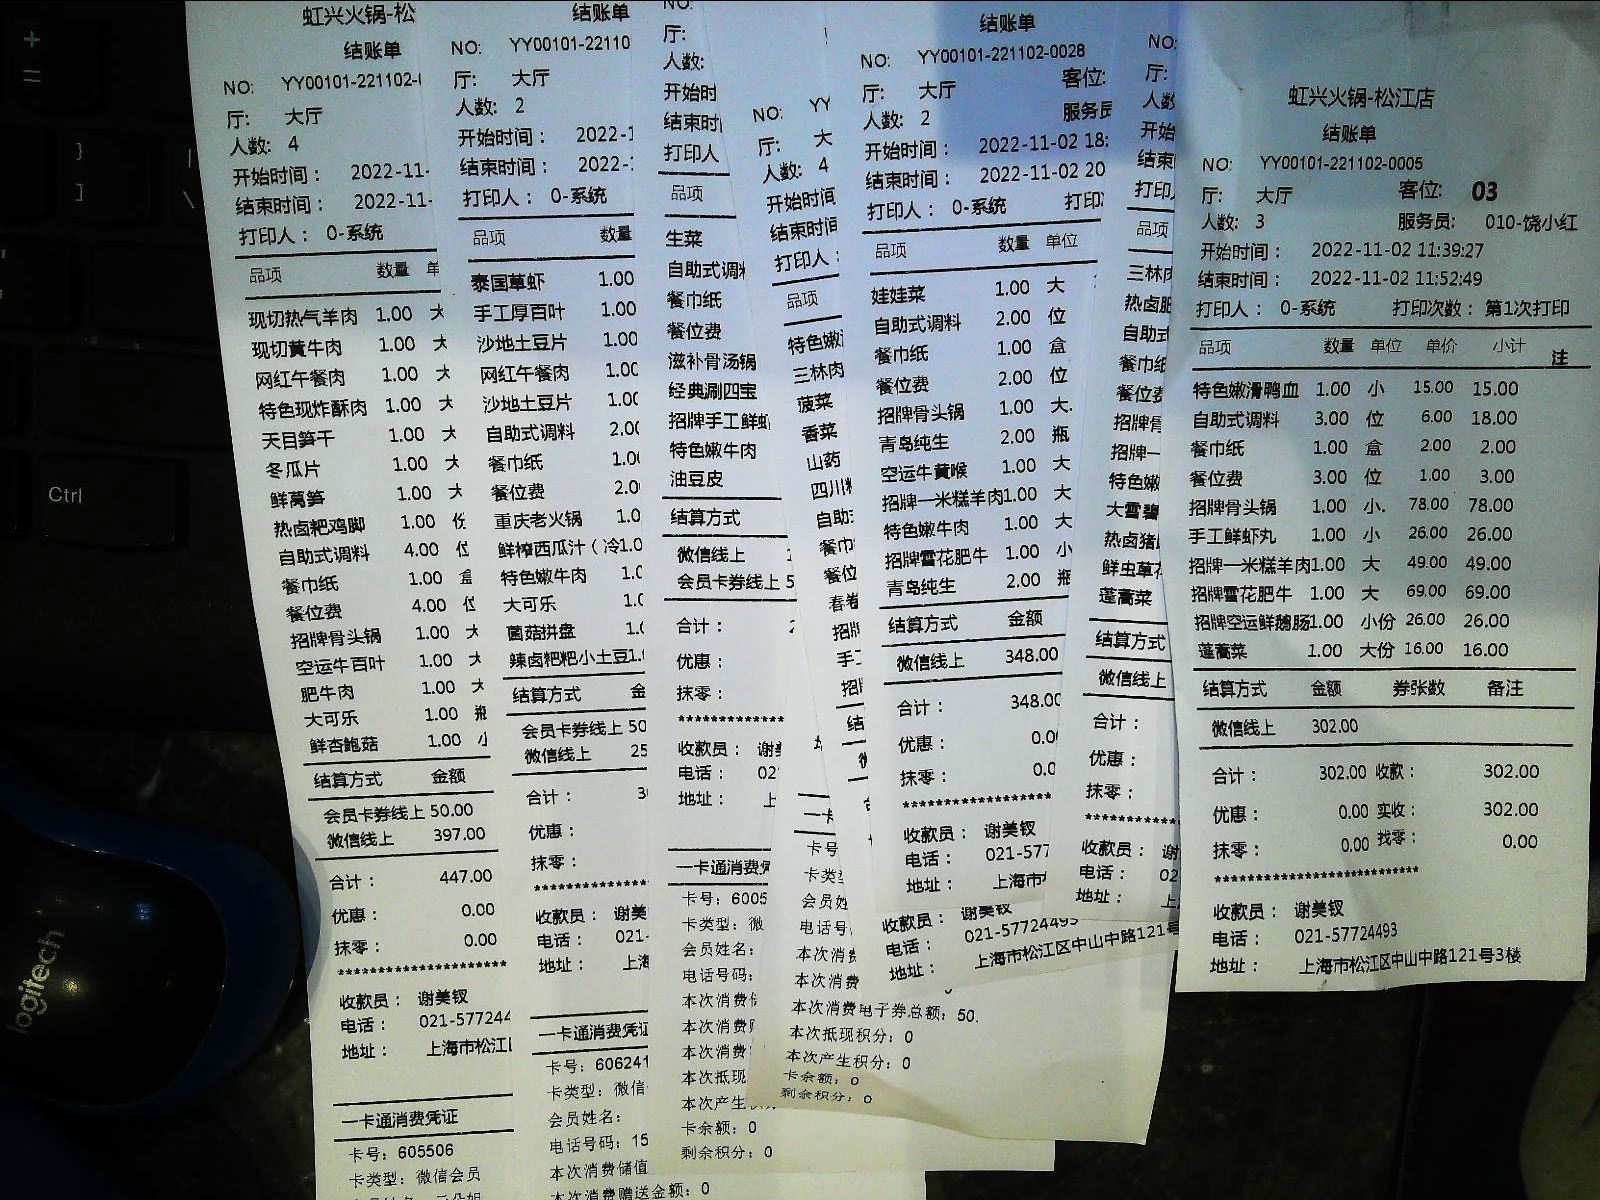 虹兴火锅-松
结账单
NO: YY00101-221102-
厅: 大厅
人数: 4
开始时间： 2022-11-
结束时间： 2022-11-
打印人： 0-系统
品项 数量 单
现切热气羊肉 1.00 大
现切黄牛肉 1.00 大
网红午餐肉 1.00 大
特色现炸酥肉 1.00 大
天目笋干 1.00 大
冬瓜片 1.00 大
鲜莴笋 1.00 大
热卤粑鸡脚 1.00 份
自助式调料 4.00 位
餐巾纸 1.00 盒
餐位费 4.00 位
招牌骨头锅 1.00 大
空运牛百叶 1.00 大
肥牛肉 1.00 大
大可乐 1.00 瓶
鲜杏鲍菇 1.00 小
结算方式 金额
会员卡券线上 50.00
微信线上 397.00
合计： 447.00
优惠： 0.00
抹零： 0.00
收款员： 谢美钗
电话： 021-577244
地址： 上海市松江
一卡通消费凭证
卡号：605506
卡类型：微信会员
结账单
NO: YY00101-22110
厅: 大厅
人数: 2
开始时间： 2022-1
结束时间： 2022-
打印人： 0-系统
品项 数量
泰国草虾 1.00
手工厚百叶 1.00
沙地土豆片 1.00
网红午餐肉 1.00
沙地土豆片 1.00
自助式调料 2.00
餐巾纸 1.00
餐位费 2.0
重庆老火锅 1.0
鲜榨西瓜汁（冷1.0
特色嫩牛肉 1.0
大可乐 1.0
菌菇拼盘 1.0
辣卤粑粑小土豆1.
结算方式 金
会员卡券线上 50
微信线上 25
合计： 3
优惠：
抹零：
收款员： 谢美
电话： 021-
地址： 上海
一卡通消费凭证
卡号：606241
卡类型：微信
会员姓名：
电话号码：15
本次消费储值
本次消费赠送金额：0
NO:
厅:
人数:
开始时
结束时
打印人
品项
生菜
自助式调料
餐巾纸
餐位费
滋补骨汤锅
经典涮四宝
招牌手工鲜虾
特色嫩牛肉
油豆皮
结算方式
微信线上
会员卡券线上 5
合计： 2
优惠：
抹零：
收款员： 谢美
电话： 02
地址： 上
一卡通消费凭
卡号：6005
卡类型：微
会员姓名：
电话号码：
本次消费储
本次消费
本次消费
本次抵现
本次产生
卡余额：0
剩余积分：0
NO: YY
厅: 大
人数: 4
开始时间
结束时间
打印人：
品项
特色嫩
三林肉
菠菜
香菜
山药
四川
自助
餐巾
餐位
春卷
招牌
手工
招牌
结
一卡
卡号
卡类型
会员姓
电话号
本次消费
本次消费
本次消费电子券总额：50.
本次抵现积分：0
本次产生积分：0
卡余额：0
剩余积分：0
收款员： 谢美钗
电话： 021-57724493
地址： 上海市松江区中山中路121号
结账单
NO: YY00101-221102-0028
厅: 大厅 客位:
人数: 2 服务员
开始时间： 2022-11-02 18:
结束时间： 2022-11-02 20
打印人： 0-系统 打印
品项 数量 单位
娃娃菜 1.00 大
自助式调料 2.00 位
餐巾纸 1.00 盒
餐位费 2.00 位
招牌骨头锅 1.00 大.
青岛纯生 2.00 瓶
空运牛黄喉 1.00 大
招牌一米糕羊肉1.00 大
特色嫩牛肉 1.00 大
招牌雪花肥牛 1.00 小
青岛纯生 2.00 瓶
结算方式 金额
微信线上 348.00
合计： 348.00
优惠： 0.0
抹零： 0.0
收款员： 谢美钗
电话： 021-577
地址： 上海市
NO:
厅:
人数
开始
结束
打印
品项
三林肉
热卤肥
自助式
餐巾纸
餐位费
招牌骨
招牌一
特色嫩
大雪碧
热卤猪
鲜虫草花
蓬蒿菜
结算方式
微信线上
合计：
优惠：
抹零：
收款员： 谢
电话： 02
地址： 上
虹兴火锅-松江店
结账单
NO: YY00101-221102-0005
厅: 大厅 客位: 03
人数: 3 服务员: 010-饶小红
开始时间： 2022-11-02 11:39:27
结束时间： 2022-11-02 11:52:49
打印人： 0-系统 打印次数：第1次打印
品项 数量 单位 单价 小计 注
特色嫩滑鸭血 1.00 小 15.00 15.00
自助式调料 3.00 位 6.00 18.00
餐巾纸 1.00 盒 2.00 2.00
餐位费 3.00 位 1.00 3.00
招牌骨头锅 1.00 小. 78.00 78.00
手工鲜虾丸 1.00 小 26.00 26.00
招牌一米糕羊肉1.00 大 49.00 49.00
招牌雪花肥牛 1.00 大 69.00 69.00
招牌空运鲜鹅肠1.00 小份 26.00 26.00
蓬蒿菜 1.00 大份 16.00 16.00
结算方式 金额 券张数 备注
微信线上 302.00
合计： 302.00 收款： 302.00
优惠： 0.00 实收： 302.00
抹零： 0.00 找零： 0.00
**************************
收款员： 谢美钗
电话： 021-57724493
地址： 上海市松江区中山中路121号3楼
Ctrl
logitech